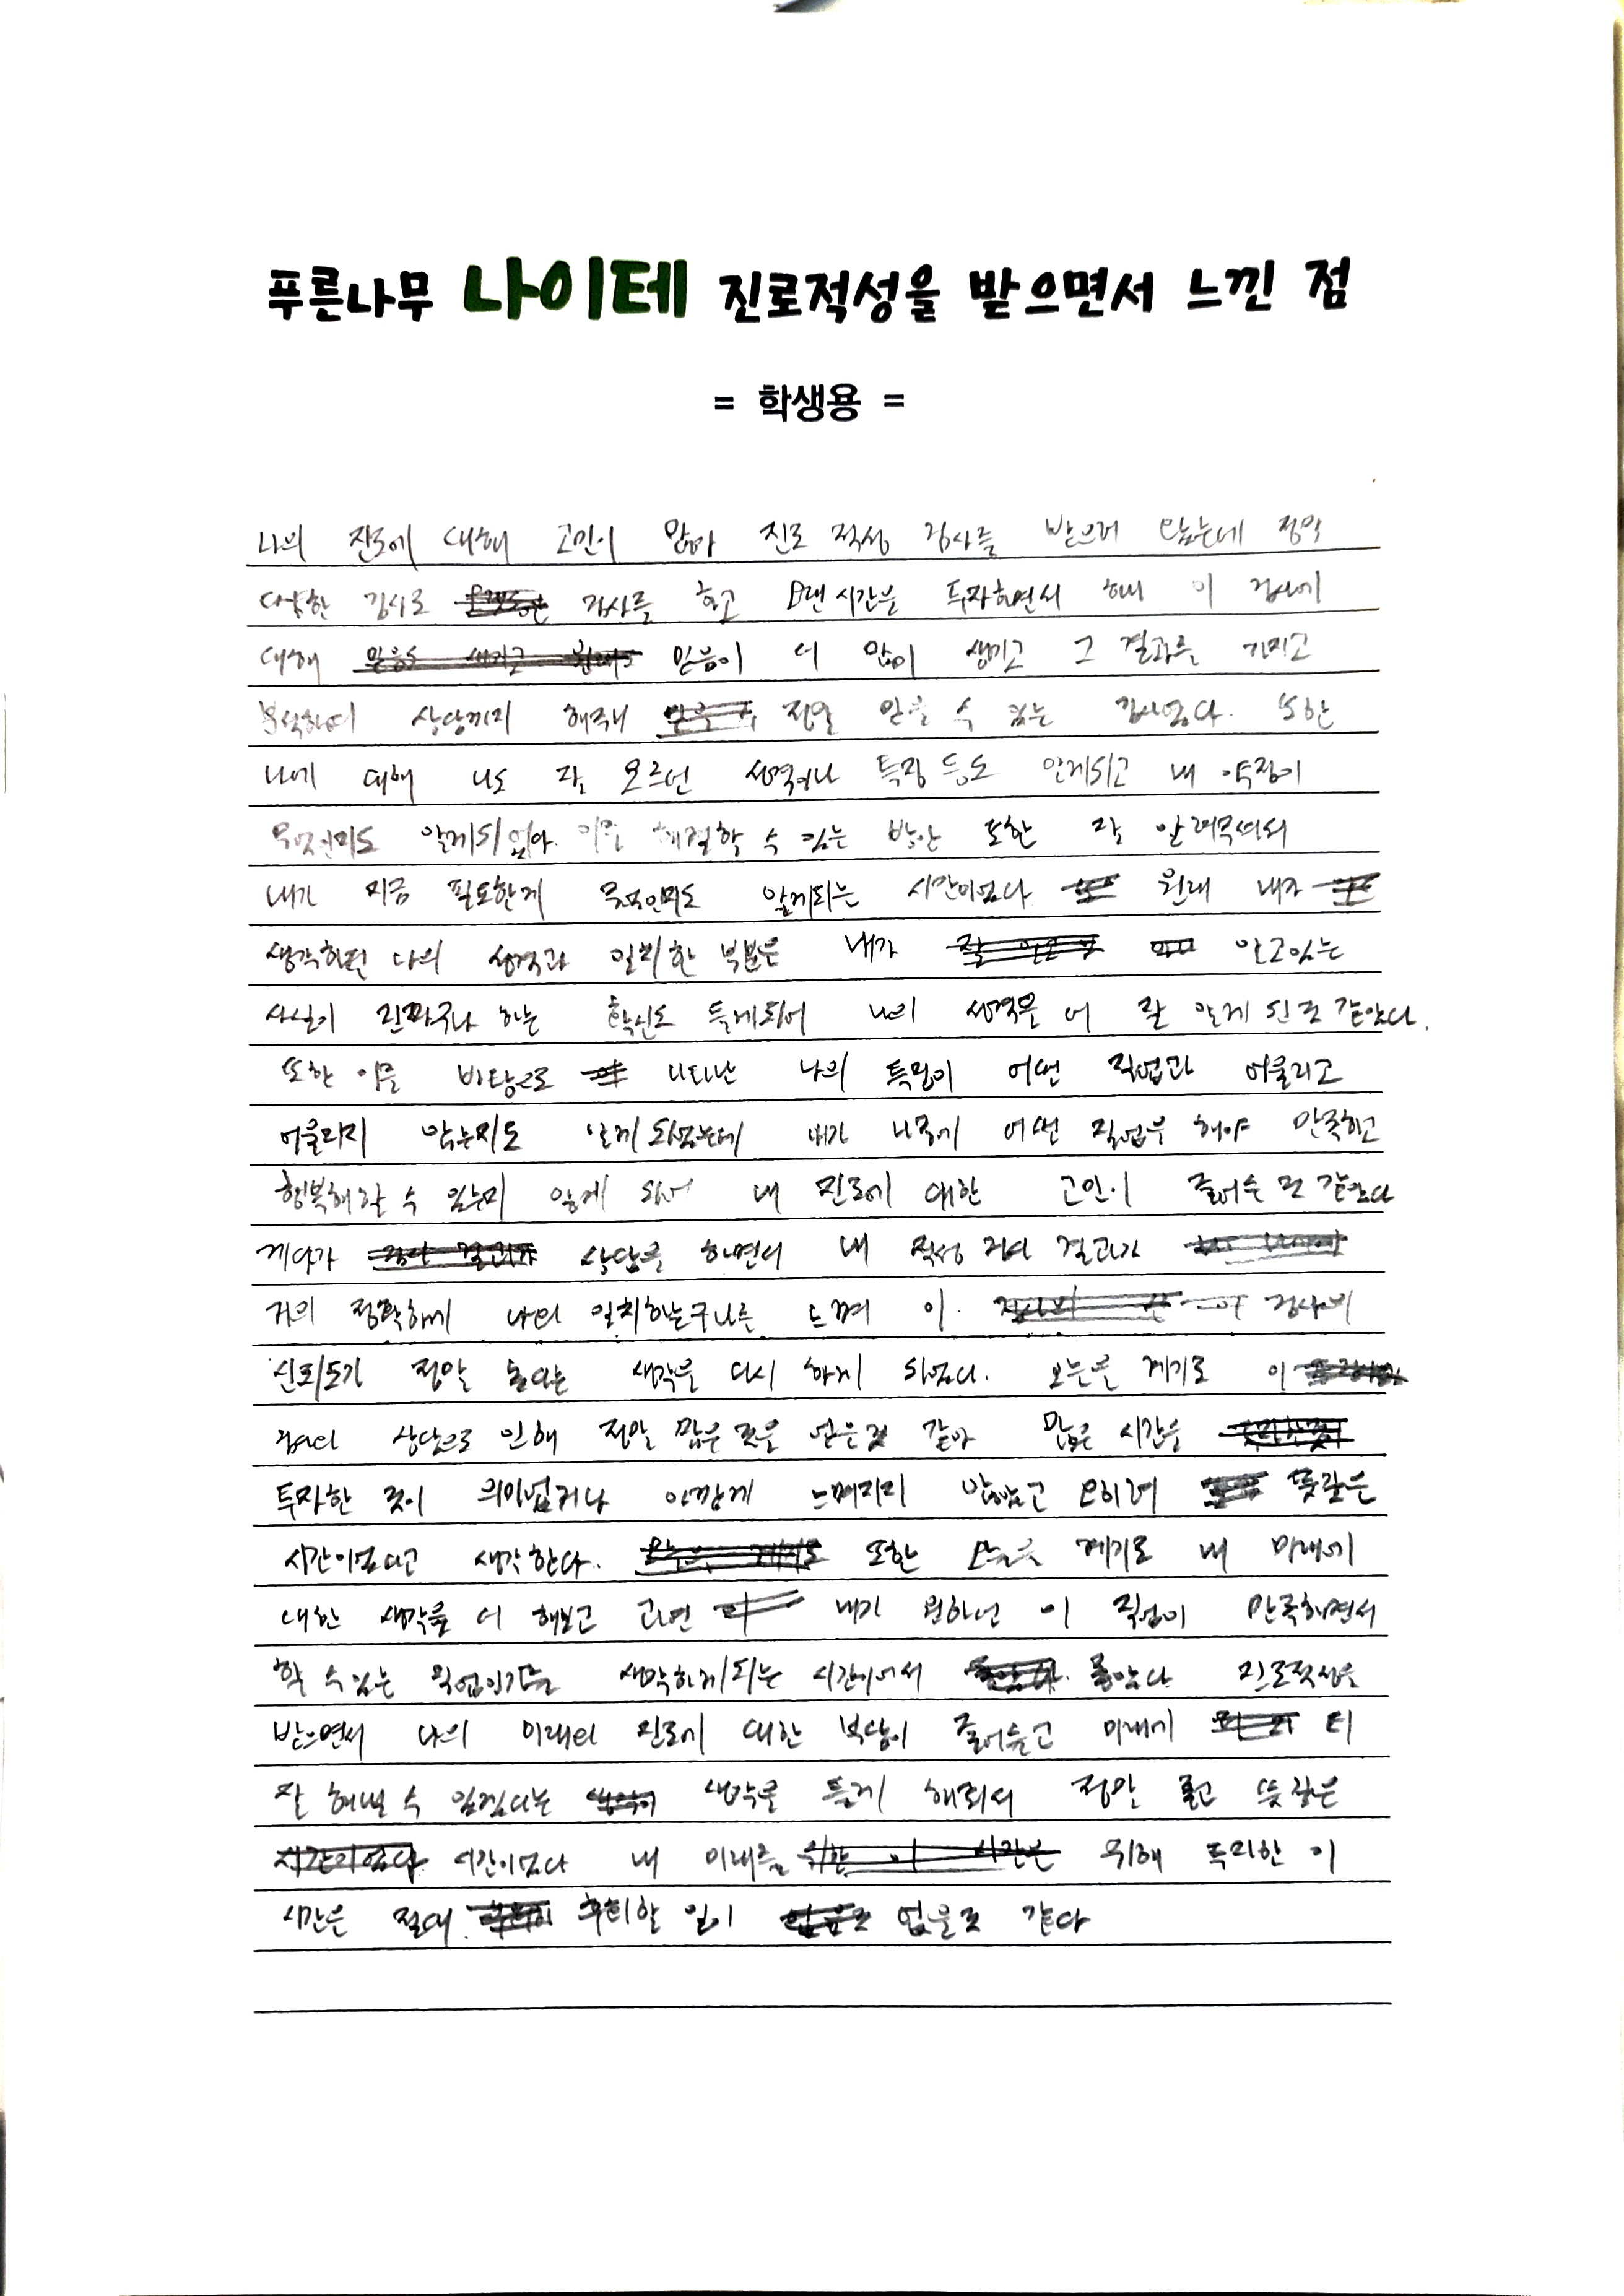 푸른나무 나이테 진로적성을 받으면서 느낀 점
= 학생용 =
나의 진로에 대해 고민이 많아 진로 적성 검사를 받으러 왔는데 정말
다양한 검사로 검사를 하고 오랜 시간을 투자하면서 해 이 검사에
대해 믿음이 더 많이 생기고 그 결과를 가지고
분석하여 상담까지 해주니 정말 믿을 수 있는 검사였다. 또한
나에 대해 나도 잘 모르던 성격이나 특징 등도 알게되고 내 약점이
무엇인지도 알게되었다. 이를 해결할 수 있는 방안 또한 잘 알려주셔서
내가 지금 필요한게 무엇인지도 알게되는 시간이었다 원래 내가
생각하던 나의 성격과 일치한 부분은 내가 알고있는
사실이 진짜구나 하는 확신도 듣게되어 나의 성격을 더 잘 알게 된 것 같았다.
또한 이를 바탕으로 나타난 나의 특징이 어떤 직업과 어울리고
어울리지 않는지도 알게 되었는데 내가 나중에 어떤 직업을 해야 만족하고
행복해할 수 있는지 알게 되어 내 진로에 대한 고민이 줄어든 것 같았다
게다가 상담을 하면서 내 적성 검사 결과가
거의 정확하게 나와 일치하는구나를 느끼며 이 검사의
신뢰도가 정말 높다는 생각을 다시 하게 되었다. 오늘을 계기로 이
검사와 상담으로 인해 정말 많은 것을 얻은것 같아 많은 시간을
투자한 것이 의미없거나 아깝게 느껴지지 않았고 오히려 뜻깊은
시간이었다고 생각한다. 또한 오늘을 계기로 내 미래에
대한 생각을 더 해보고 과연 내가 원하던 이 직업이 만족하면서
할 수 있는 직업인가를 생각하게되는 시간이어서 좋았다 진로적성을
받으면서 나의 미래와 진로에 대한 부담이 줄어들고 미래에 더
잘 해낼 수 있겠다는 생각을 들게 해줘서 정말 좋고 뜻깊은
시간이었다 내 미래를 위해 투자한 이
시간은 절대 후회할 일이 없을것 같다